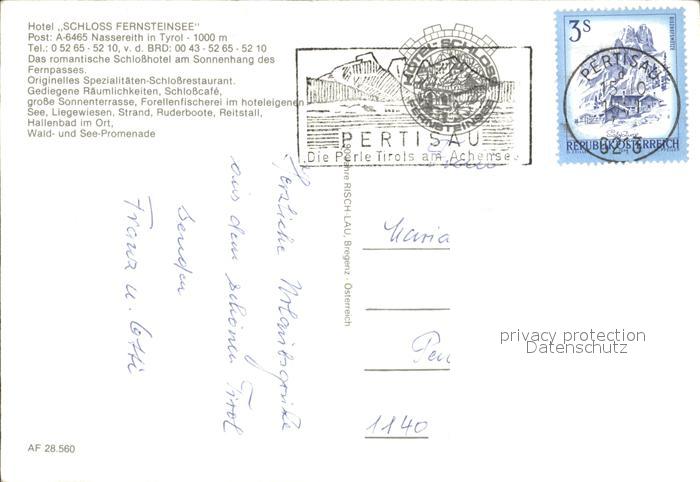 Hotel „SCHLOSS FERNSTEINSEE"
Post: A-6465 Nassereith in Tyrol - 1000 m
Tel.: 0 52 65 - 52 10, v. d. BRD: 00 43 - 52 65 - 52 10
Das romantische Schloßhotel am Sonnenhang des
Fernpasses.
Originelles Spezialitäten-Schloßrestaurant.
Gediegene Räumlichkeiten, Schloßcafé,
große Sonnenterrasse, Forellenfischerei im hoteleigenen
See, Liegewiesen, Strand, Ruderboote, Reitstall,
Hallenbad im Ort,
Wald- und See-Promenade
HOTEL-SCHLOSS
FERNSTEINSEE
PERTISAU
Die Perle Tirols am Achensee
3S
REPUBLIK ÖSTERREICH
PERTISAU
6213
Herzliche Urlaubsgrüße
aus dem schönen Tirol
senden
Franz u.
RISCH-LAU, Bregenz - Österreich
Maria
1140
privacy protection
Datenschutz
AF 28.560